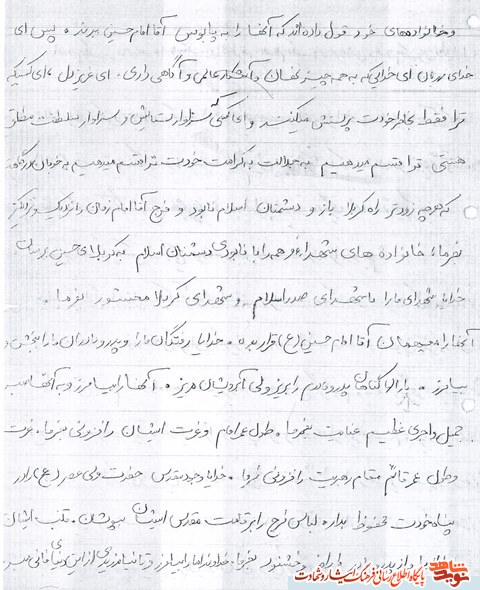 و خانواده‌های خود قول داده‌اند که آنها را به پابوس آقا امام حسین ببرند. پس ای
خدای مهربان ای خدایی که به همه چیز نهان و آشکار عالمی و آگاهی داری. ای عزیز دل، ای کسیکه
ترا فقط بخاطر خودت پرستش میکنند و ای کسی که سزاوار ستایش و سزاوار سلطنت مطلق
هستی ترا قسم میدهیم به جلالت به کرامت خودت ترا قسم میدهیم به خوبان درگاهت
که هرچه زودتر راه کربلا باز و دشمنان اسلام نابود و فرج آقا امام زمان را نزدیک و نزدیکتر
بفرما، خانواده های شهداء و همه را با نابودی دشمنان اسلام به کربلای حسین برسان
خدایا شهدای ما را با شهدای صدر اسلام و شهدای کربلا محشور بفرما.
آنها را میهمان آقا امام حسین (ع) قرار بده. خدایا رفتگان ما را و پدر و مادران ما را ببخش و
بیامرز. بارالها گناهان پدر و مادرم را بریز ولی آبرویشان مریز. آنها را بیامرز و به آنها صبر
جمیل و اجری عظیم عنایت بفرما. طول عمر امام و عزت ایشان را فزونی بفرما. عزت
و طول عمر قائم مقام رهبریت را فزونی فرما. خدایا وجود مقدس حضرت ولی عصر (عج) را در
پناه خودت محفوظ بدار، لباس فرج را بر قامت مقدس ایشان بپوشان. قلب ایشان
را از راضی و خشنود بفرما. خداوندا ما را بیامرز و تا نیامرزیدی از این دنیای فانی مبر
نوید شاهد
پایگاه اطلاع رسانی فرهنگ ایثار و شهادت